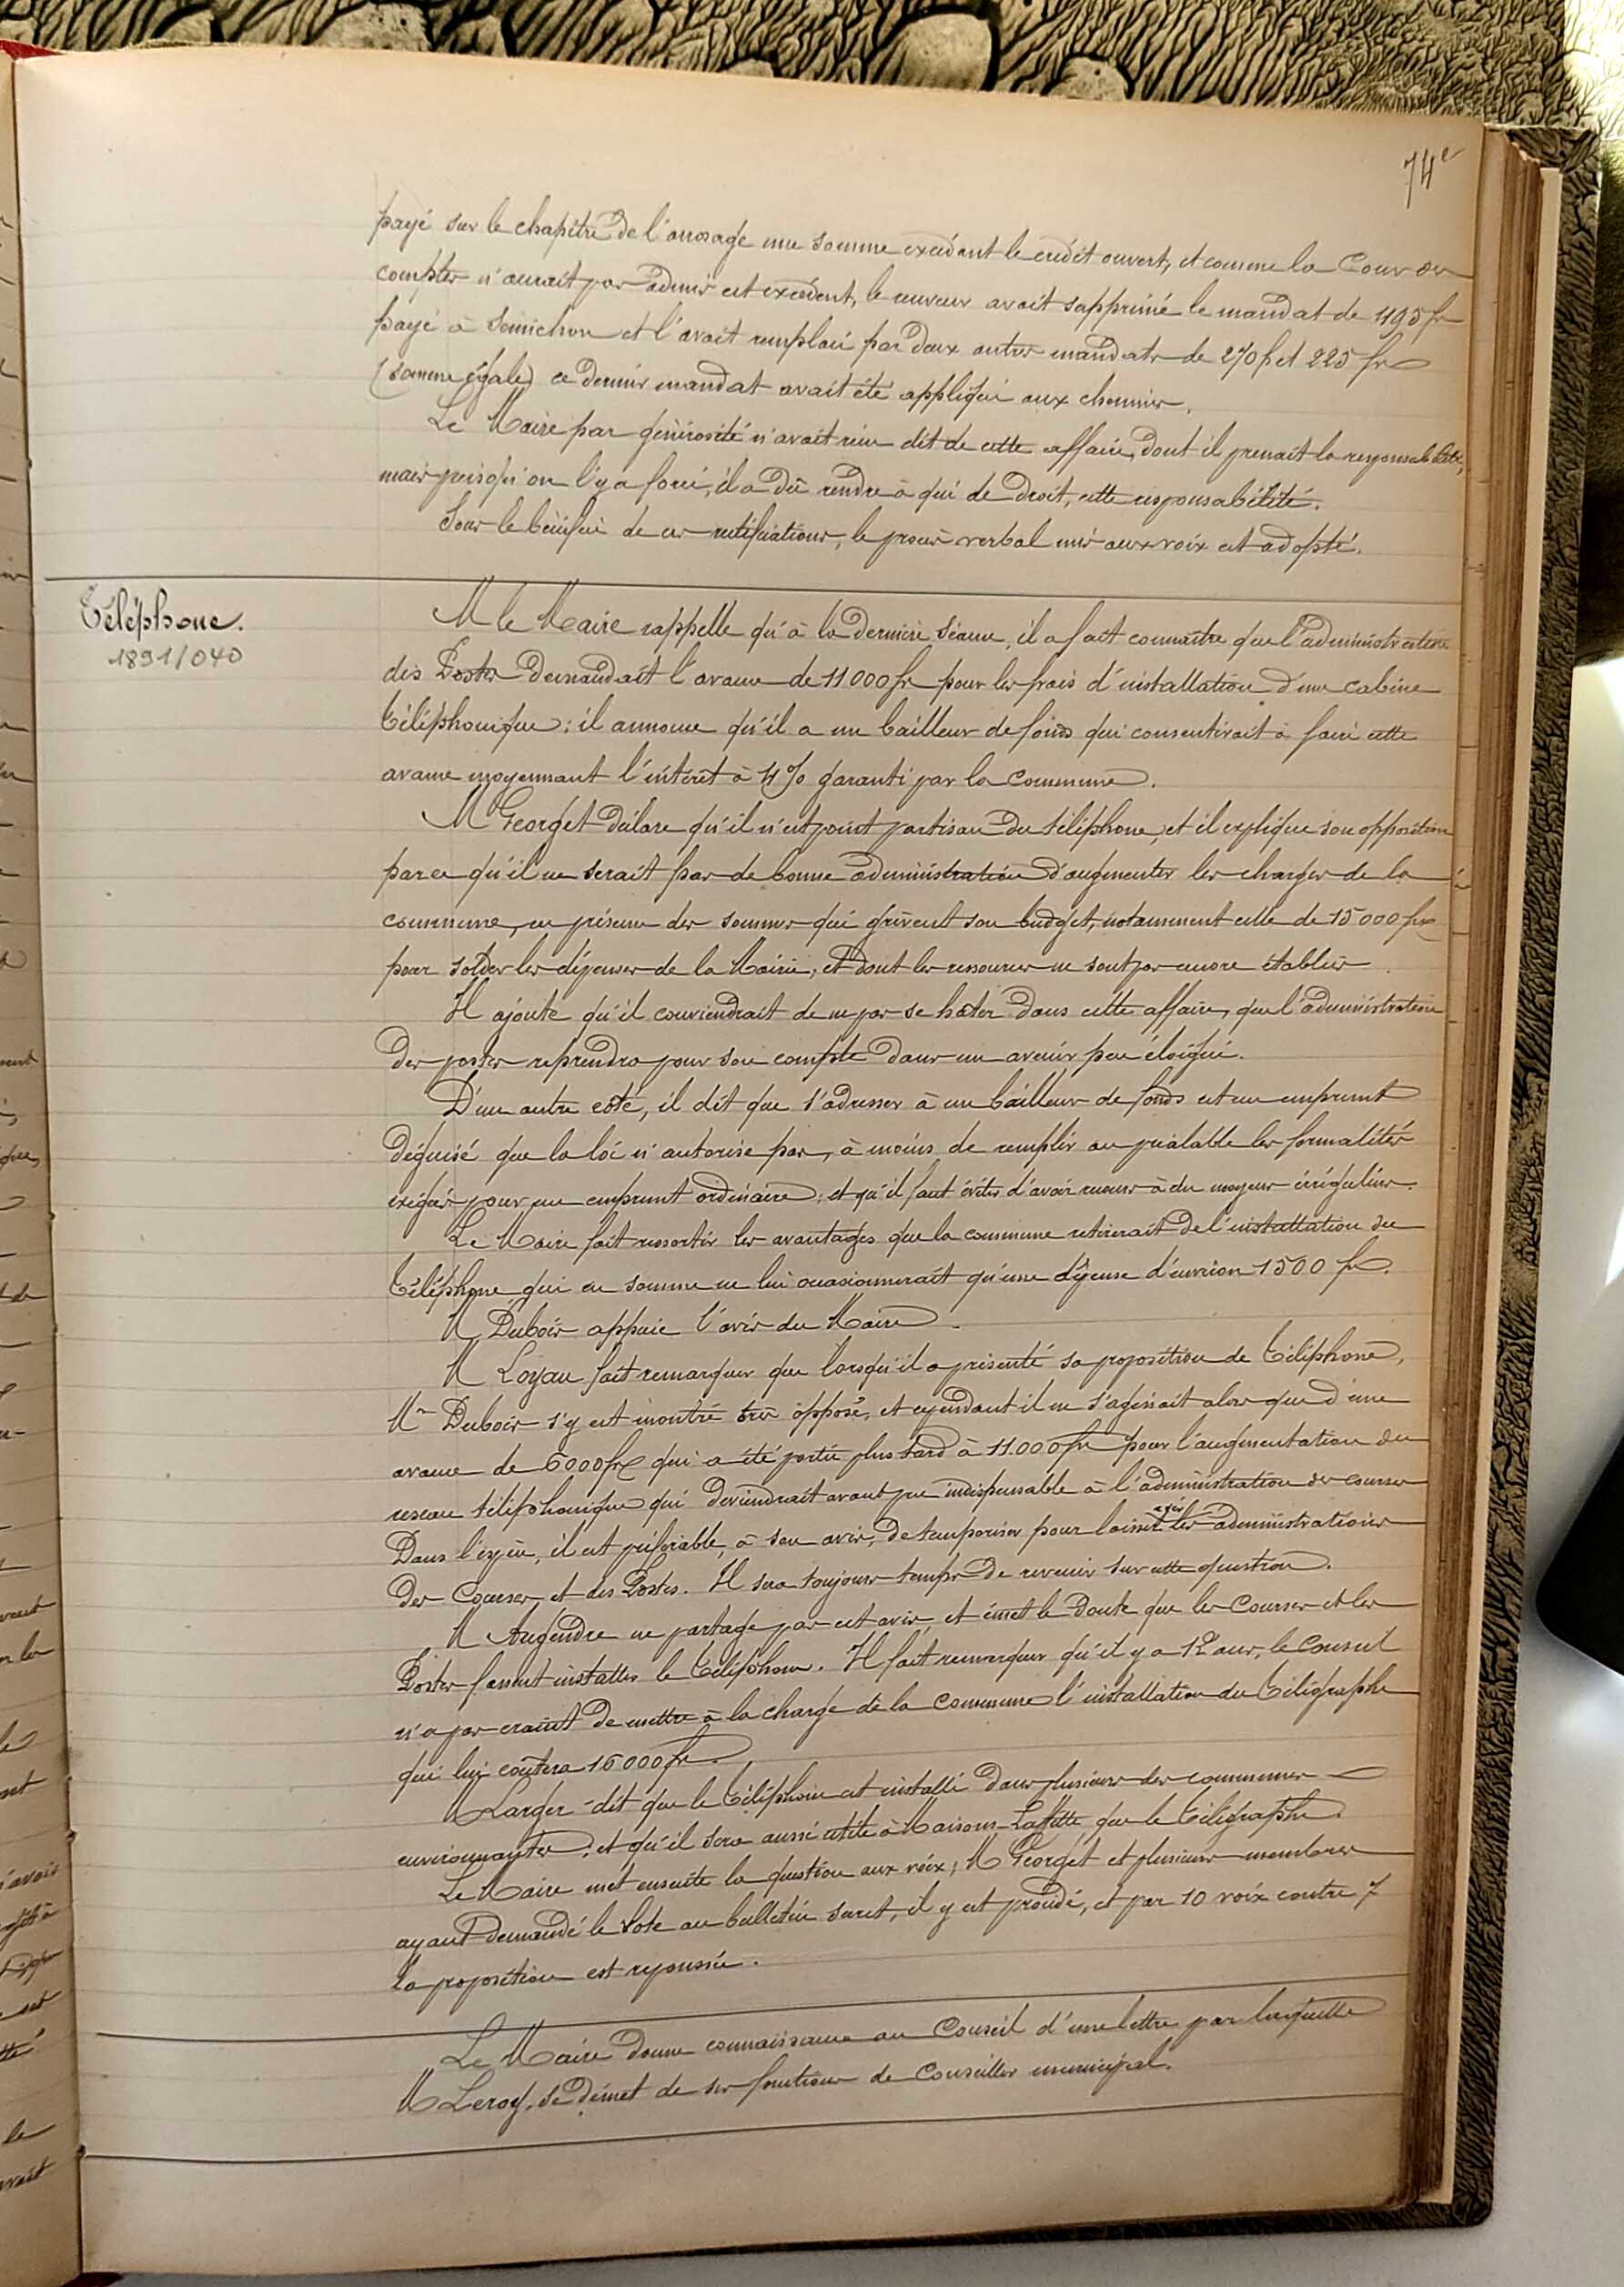 74e
payé sur le chapitre de l'arrosage une somme excédant le crédit ouvert, et comme la Cour des
comptes n'aurait pas admis cet excédent, le receveur avait supprimé le mandat de 495 fr
payé à Sémichon et l'avait remplacé par deux autres mandats de 270 f et 225 fr
(somme égale) ce dernier mandat avait été appliqué aux chemins.
Le Maire par générosité n'avait rien dit de cette affaire, dont il prenait la responsabilité,
mais puisqu'on l'y a forcé, il a dû rendre à qui de droit, cette responsabilité.
Sous le bénéfice de ces rectifications, le procès verbal mis aux voix est adopté.
Téléphone.
1891/040
M le Maire rappelle qu'à la dernière séance, il a fait connaître que l'administration
des Postes demandait l'avance de 11000 fr pour les frais d'installation d'une cabine
téléphonique : il annonce qu'il a un bailleur de fonds qui consentirait à faire cette
avance moyennant l'intérêt à 4% garanti par la Commune.
M Georget déclare qu'il n'est point partisan du téléphone, et il explique son opposition
parce qu'il ne serait pas de bonne administration d'augmenter les charges de la
commune, en présence des sommes qui grèvent son budget, notamment celle de 15000 fr
pour solder les dépenses de la Mairie, et dont les ressources ne sont pas encore établies.
Il ajoute qu'il conviendrait de ne pas se hâter dans cette affaire, que l'administration
des postes reprendra pour son compte dans un avenir peu éloigné.
D'un autre coté, il dit que s'adresser à un bailleur de fonds est un emprunt
déguisé que la loi n'autorise pas, à moins de remplir au préalable les formalités
exigées pour un emprunt ordinaire ; et qu'il faut éviter d'avoir recours à des moyens irréguliers.
Le Maire fait ressortir les avantages que la commune retirerait de l'installation du
téléphone qui en somme ne lui occasionnerait qu'une dépense d'environ 1500 fr.
M Dubois appuie l'avis du Maire.
M Loyau fait remarquer que lorsqu'il a présenté sa proposition de téléphone,
Mr Dubois s'y est montré très opposé, et cependant il ne s'agissait alors que d'une
avance de 6000 fr qui a été portée plus tard à 11.000 fr pour l'augmentation du
reseau téléphonique qui deviendrait avant peu indispensable à l'administration des courses
Dans l'espèce, il est préférable, à son avis, de temporiser pour laisser agir les administrations
des Courses et des Postes. Il sera toujours temps de revenir sur cette question.
M Augendre ne partage pas cet avis, et émet le doute que les Courses et les
Postes fassent installer le téléphone. Il fait remarquer qu'il y a 12 ans, le Conseil
n'a pas craint de mettre à la charge de la Commune l'installation du télégraphe
qui lui coûtera 16000 fr.
M Larger dit que le téléphone est installé dans plusieurs des communes
environnantes, et qu'il sera aussi utile à Maisons-Laffitte que le télégraphe.
Le Maire met ensuite la question aux voix ; M Georget et plusieurs membres
ayant demandé le vote au bulletin secret, il y est procédé, et par 10 voix contre 7
la proposition est repoussée.
Le Maire donne connaissance au Conseil d'une lettre par laquelle
M Leroy, se démet de ses fonctions de Conseiller municipal.